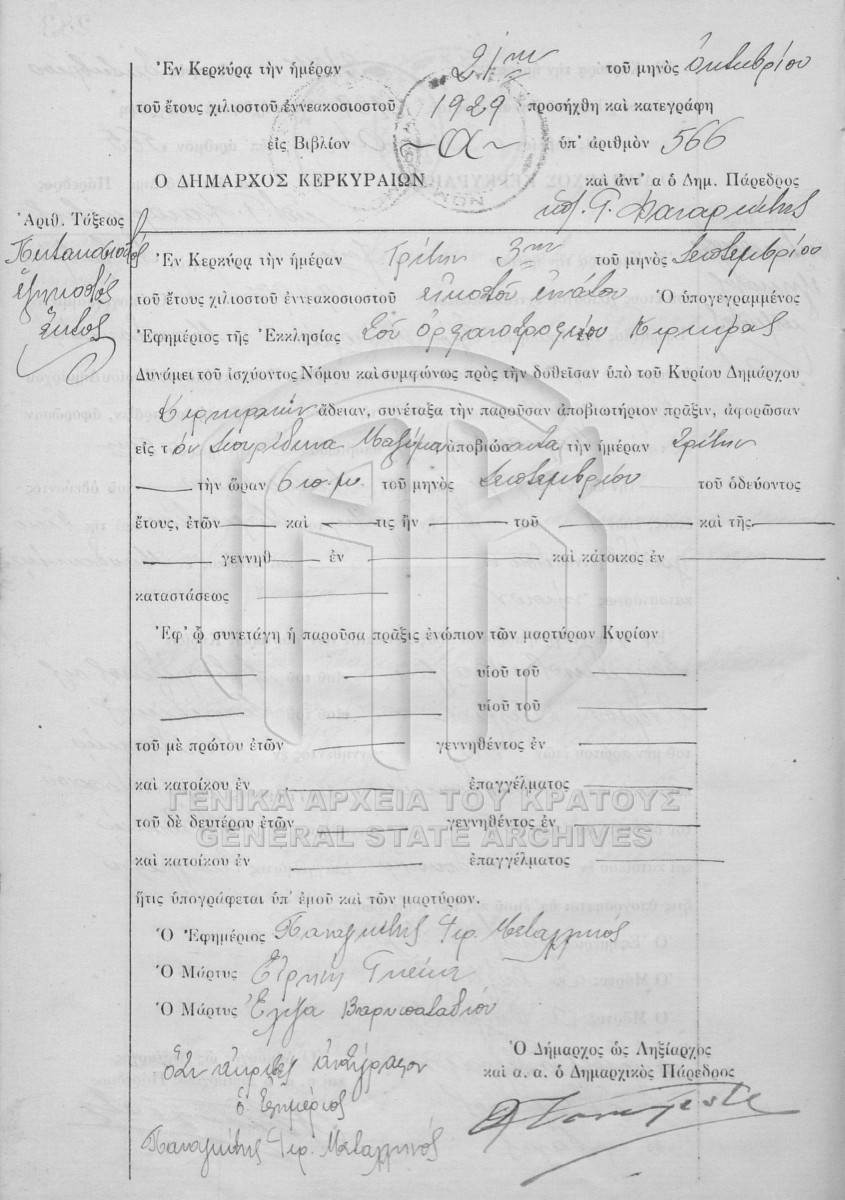 Ἐν Κερκύρᾳ τὴν ἡμέραν 21ην τοῦ μηνὸς Ὀκτωβρίου
τοῦ ἔτους χιλιοστοῦ ἐννεακοσιοστοῦ 1929 προσήχθη καὶ κατεγράφη
εἰς Βιβλίον α ὑπ' ἀριθμὸν 566
Ο ΔΗΜΑΡΧΟΣ ΚΕΡΚΥΡΑΙΩΝ καὶ ἀντ' α ὁ Δημ. Πάρεδρος
Ἀριθ. Τάξεως
Πεντακοσιοστός
ἑξηκοστός
ἕκτος
Ἐν Κερκύρᾳ τὴν ἡμέραν Τρίτην 3ην τοῦ μηνὸς Σεπτεμβρίου
τοῦ ἔτους χιλιοστοῦ ἐννεακοσιοστοῦ εἰκοστοῦ ἐνάτου Ὁ ὑπογεγραμμένος
Ἐφημέριος τῆς Ἐκκλησίας τοῦ Ὀρφανοτροφείου Κερκύρας
Δυνάμει τοῦ ἰσχύοντος Νόμου καὶ συμφώνως πρὸς τὴν δοθεῖσαν ὑπὸ τοῦ Κυρίου Δημάρχου
Κερκυραίων ἄδειαν, συνέταξα τὴν παροῦσαν ἀποβιωτήριον πρᾶξιν, ἀφορῶσαν
εἰς τὸν Σπυρίδωνα Μαξίμο ἀποβιώσαντα τὴν ἡμέραν Τρίτην
τὴν ὥραν 6 π.μ. τοῦ μηνὸς Σεπτεμβρίου τοῦ ὁδεύοντος
ἔτους, ἐτῶν καὶ τις ἦν τοῦ καὶ τῆς
γεννηθ ἐν καὶ κάτοικος ἐν
καταστάσεως
Ἐφ' ᾧ συνετάγη ἡ παροῦσα πρᾶξις ἐνώπιον τῶν μαρτύρων Κυρίων
υἱοῦ τοῦ
υἱοῦ τοῦ
τοῦ μὲ πρώτου ἐτῶν γεννηθέντος ἐν
καὶ κατοίκου ἐν ἐπαγγέλματος
ΓΕΝΙΚΑ ΑΡΧΕΙΑ ΤΟΥ ΚΡΑΤΟΥΣ
τοῦ δὲ δευτέρου ἐτῶν γεννηθέντος ἐν
GENERAL STATE ARCHIVES
καὶ κατοίκου ἐν ἐπαγγέλματος
ἥτις ὑπογράφεται ὑπ' ἐμοῦ καὶ τῶν μαρτύρων.
Ὁ Ἐφημέριος Παναγιώτης Φερ. Μεταλληνός
Ὁ Μάρτυς Εἰρήνη
Ὁ Μάρτυς Ἑλίζα Βαρυπατάδου
Ὁ Δήμαρχος ὡς Ληξίαρχος
καὶ α. α. ὁ Δημαρχικὸς Πάρεδρος
Ὅτι ἀκριβὲς ἀντίγραφον
ὁ Ἐφημέριος
Παναγιώτης Φερ. Μεταλληνός